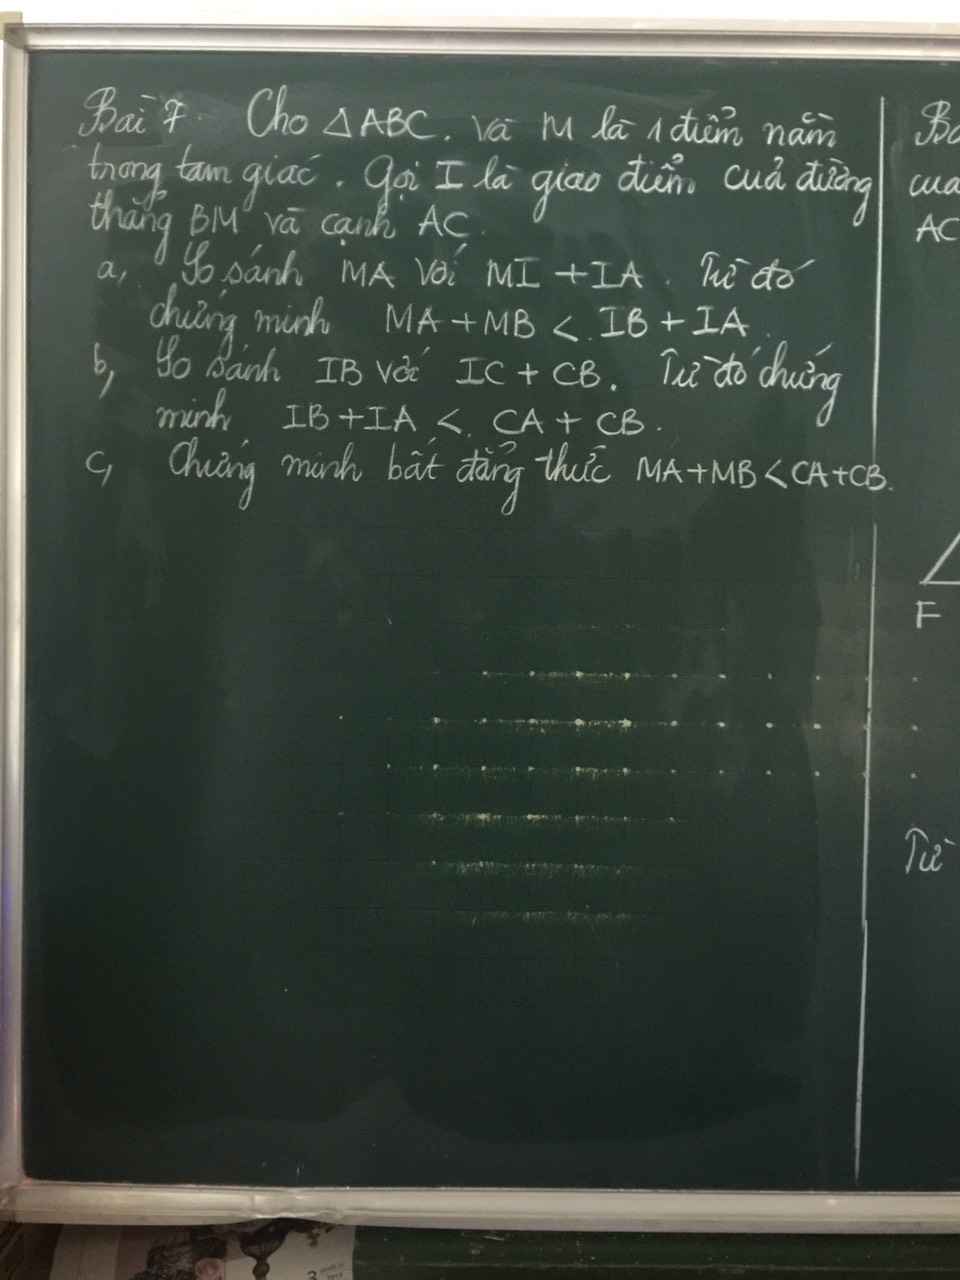 Bài 7. Cho △ABC. và M là 1 điểm nằm
trong tam giác. Gọi I là giao điểm của đường
thẳng BM và cạnh AC.
a, So sánh MA với MI + IA. Từ đó
chứng minh MA + MB < IB + IA.
b, So sánh IB với IC + CB. Từ đó chứng
minh IB + IA < CA + CB.
c, Chứng minh bất đẳng thức MA + MB < CA + CB.
của
AC
F
Từ
3